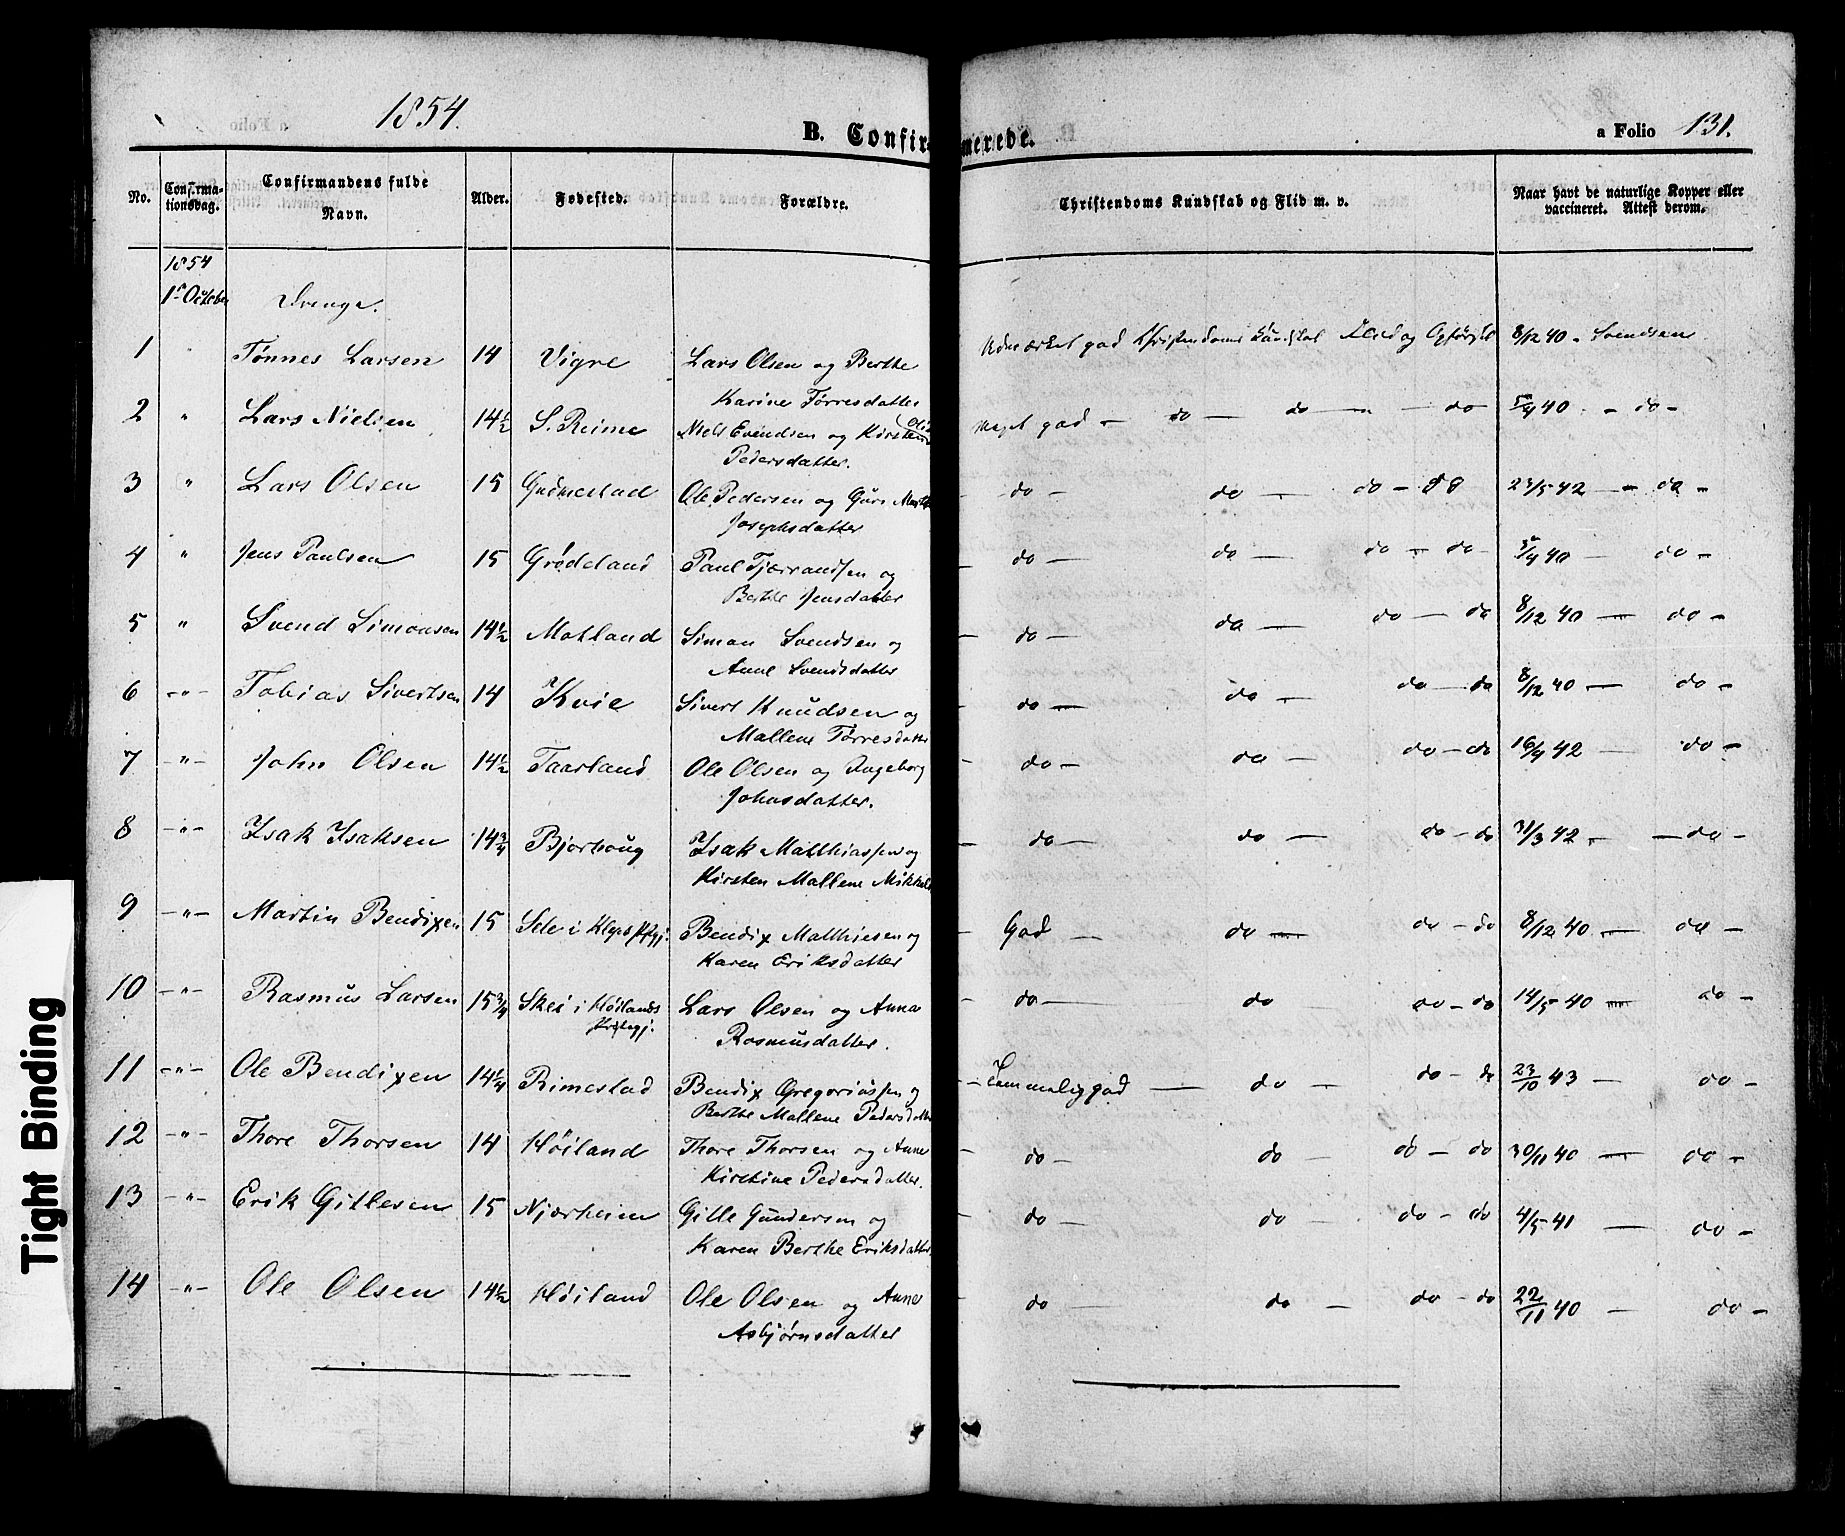 1854.
B. Confirmerede.
a Folio 131.
No. Confirmationsdag. Confirmandens fulde Navn. Alder. Fødested. Forældre. Christendoms Kundskab og Flid m. v. Naar havt de naturlige Kopper eller vaccineret. Attest derom.
1854
1ste October Drenge.
1 " Tønnes Larsen 14 Vigre Lars Olsen og Berthe Udmærket god Christendoms Kundskab Flid og Opførsel 8/12 40 - Svendsen
Karine Tørresdatter
2 " Lars Nielsen 14½ S. Reime Niels Evendsen og Kirsten meget god - do - do - do 5/4 40 - do -
Pedersdatter.
3 " Lars Olsen 15 Gudmestad Ole Pedersen og Guri Marthe do - do - do - do 23/5 42 - do -
Josephsdatter
4 " Jens Paulsen 15 Grødeland Paul Tjærrandsen og do - do - do - do 5/4 40 - do -
Berthe Jensdatter
5 " Svend Simonsen 14½ Motland Simon Svendsen og - do - do - do - do 8/12 40 - do -
Anne Svendsdatter
6 -"- Tobias Sivertsen 14 Kvie Sivert Knudsen og - do - do - do - do 8/12 40 - do -
Mallene Tørresdatter
7 -"- John Olsen 14½ Taarland Ole Olsen og Ingeborg - do - do - do - do 16/9 42 - do -
Johnsdatter.
8 -"- Isak Isaksen 14¾ Bjorhoug Isak Matthiassen og - do - do - do - do 31/3 42 - do -
Kirsten Mallene Mikkels
9 -"- Martin Bendixen 15 Sele i Kleps Prgj. Bendix Matthiesen og God - do - do - do 8/12 40 - do -
Karen Eriksdatter
10 -"- Rasmus Larsen 15¾ Skei i Høilands Lars Olsen og Anna - do - do do - do 14/5 40 - do -
Prstegj. Rasmusdatter.
11 -"- Ole Bendixen 14¼ Rimestad Bendix Gregoriussen og - Temmelig god - do - do - do 23/10 43 - do -
Berthe Mallene Pedersdatter
12 -"- Thore Thorsen 14 Høiland Thore Thorsen og Anne - do - do - do - do 30/11 40 - do -
Kirstine Pedersdatter.
13 -"- Erik Gitlesen 15 Njærheim Gitle Gundersen og - do - do - do - do 4/5 41 - do -
Karen Berthe Eriksdatter
14 -"- Ole Olsen 14½ Høiland Ole Olsen og Anne - do - do - do - do 22/11 40 - do -
Asbjørnsdatter
Tight Binding